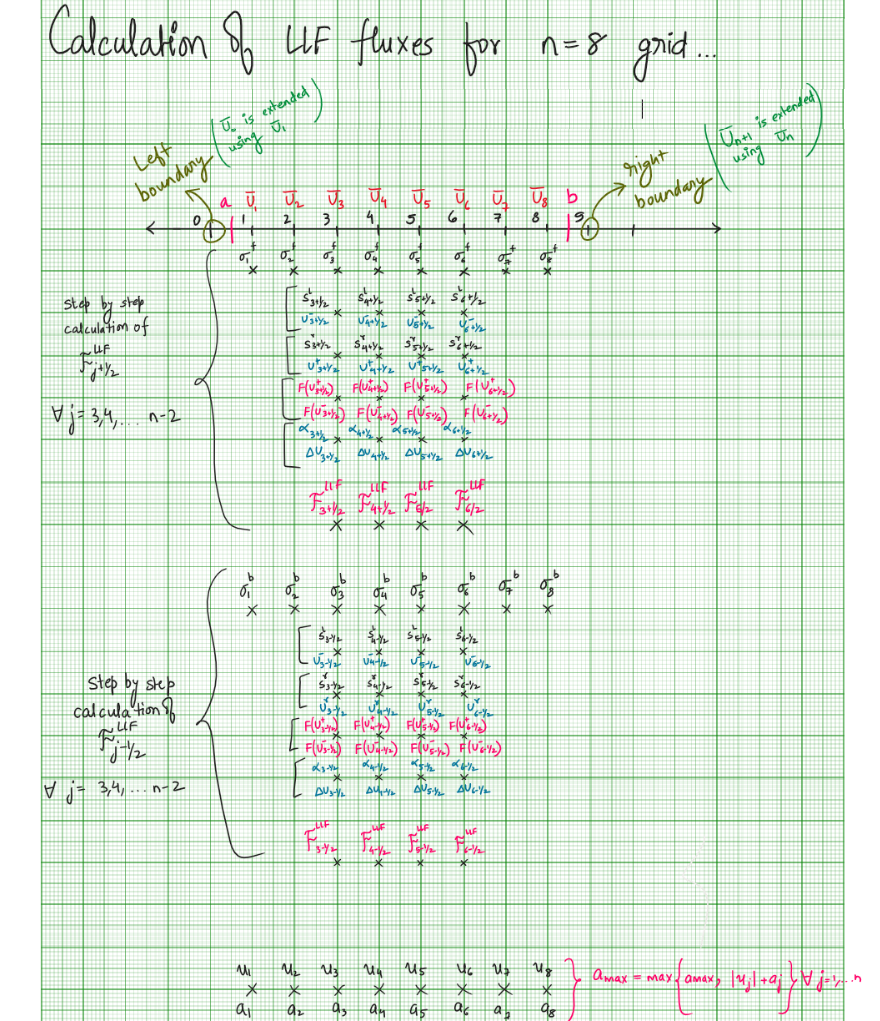 Calculation of LLF fluxes for n=8 grid...
(U̅₀ is extended using U̅₁)
(U̅ₙ₊₁ is extended using U̅ₙ)
Left boundary
right boundary
a U̅₁ U̅₂ U̅₃ U̅₄ U̅₅ U̅₆ U̅₇ U̅₈ b
0 1 2 3 4 5 6 7 8 9
σ₁ᶠ σ₂ᶠ σ₃ᶠ σ₄ᶠ σ₅ᶠ σ₆ᶠ σ₇ᶠ σ₈ᶠ
x x x x x x x x
Step by step
calculation of
F^LLF_j+1/2
∀ j = 3,4,... n-2
Sˡ₃₊₁/₂ Sˡ₄₊₁/₂ Sˡ₅₊₁/₂ Sˡ₆₊₁/₂
U⁻₃₊₁/₂ U⁻₄₊₁/₂ U⁻₅₊₁/₂ U⁻₆₊₁/₂
Sʳ₃₊₁/₂ Sʳ₄₊₁/₂ Sʳ₅₊₁/₂ Sʳ₆₊₁/₂
U⁺₃₊₁/₂ U⁺₄₊₁/₂ U⁺₅₊₁/₂ U⁺₆₊₁/₂
F(U⁺₃₊₁/₂) F(U⁺₄₊₁/₂) F(U⁺₅₊₁/₂) F(U⁺₆₊₁/₂)
F(U⁻₃₊₁/₂) F(U⁻₄₊₁/₂) F(U⁻₅₊₁/₂) F(U⁻₆₊₁/₂)
α₃₊₁/₂ α₄₊₁/₂ α₅₊₁/₂ α₆₊₁/₂
ΔU₃₊₁/₂ ΔU₄₊₁/₂ ΔU₅₊₁/₂ ΔU₆₊₁/₂
F^LLF_3+1/2 F^LLF_4+1/2 F^LLF_5/2 F^LLF_6/2
x x x x
σ₁ᵇ σ₂ᵇ σ₃ᵇ σ₄ᵇ σ₅ᵇ σ₆ᵇ σ₇ᵇ σ₈ᵇ
x x x x x x x x
Step by step
calculation of
F^LLF_j-1/2
∀ j = 3,4,... n-2
Sˡ₃₋₁/₂ Sˡ₄₋₁/₂ Sˡ₅₋₁/₂ Sˡ₆₋₁/₂
U⁻₃₋₁/₂ U⁻₄₋₁/₂ U⁻₅₋₁/₂ U⁻₆₋₁/₂
Sʳ₃₋₁/₂ Sʳ₄₋₁/₂ Sʳ₅₋₁/₂ Sʳ₆₋₁/₂
Uʳ₃₋₁/₂ Uʳ₄₋₁/₂ Uʳ₅₋₁/₂ Uʳ₆₋₁/₂
F(U⁺₃₋₁/₂) F(U⁺₄₋₁/₂) F(U⁺₅₋₁/₂) F(U⁺₆₋₁/₂)
F(U⁻₃₋₁/₂) F(U⁻₄₋₁/₂) F(U⁻₅₋₁/₂) F(U⁻₆₋₁/₂)
α₃₋₁/₂ α₄₋₁/₂ α₅₋₁/₂ α₆₋₁/₂
ΔU₃₋₁/₂ ΔU₄₋₁/₂ ΔU₅₋₁/₂ ΔU₆₋₁/₂
F^LLF_3-1/2 F^LLF_4-1/2 F^LLF_5-1/2 F^LLF_6-1/2
x x x x
u₁ u₂ u₃ u₄ u₅ u₆ u₇ u₈
x x x x x x x x
a₁ a₂ a₃ a₄ a₅ a₆ a₇ a₈
} amax = max{amax, |uj|+aj} ∀ j=1,...n